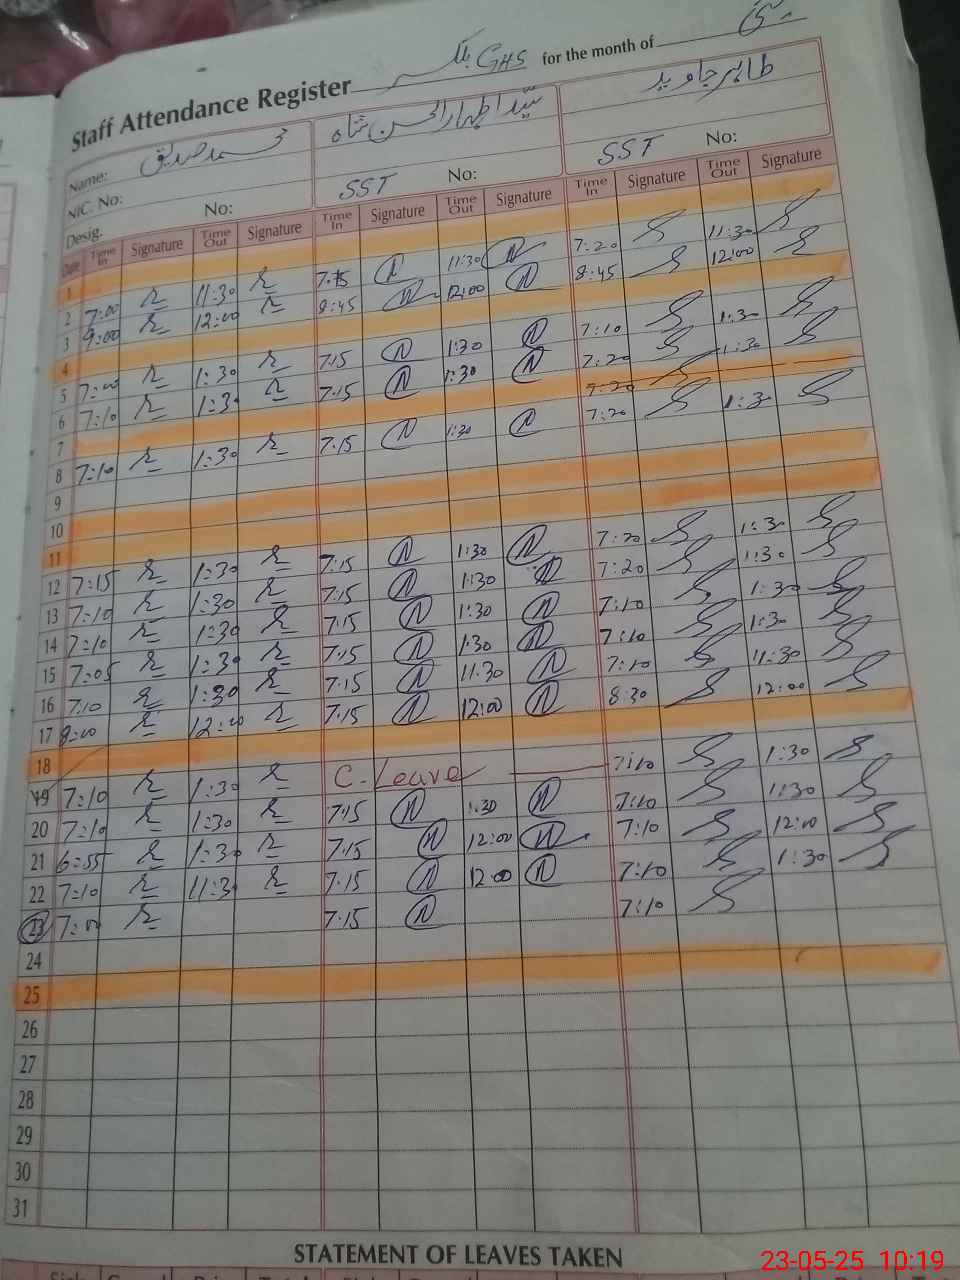 Staff Attendance Register GHS for the month of مئی
Name: محمد صدیق سید اظہار الحسن شاہ طاہر جاوید
NIC. No:
Desig. No: SST No: SST No:
Date Time In Signature Time Out Signature Time In Signature Time Out Signature Time In Signature Time Out Signature
1
2 7:00 11:30 7:15 11:30 7:20 11:30
3 9:00 12:00 8:45 12:00 8:45 12:00
4
5 7:00 1:30 7:15 1:30 7:10 1:30
6 7:10 1:30 7:15 1:30 7:20 1:30
7 7:20
8 7:10 1:30 7:15 1:30 7:20 1:30
9
10
11
12 7:15 1:30 7:15 1:30 7:20 1:30
13 7:10 1:30 7:15 1:30 7:20 1:30
14 7:10 1:30 7:15 1:30 7:10 1:30
15 7:05 1:30 7:15 1:30 7:10 1:30
16 7:10 1:30 7:15 11:30 7:10 11:30
17 8:00 12:00 7:15 12:00 8:30 12:00
18
19 7:10 1:30 C-Leave 7:10 1:30
20 7:10 1:30 7:15 1:30 7:10 1:30
21 6:55 1:30 7:15 12:00 7:10 12:00
22 7:10 11:30 7:15 12:00 7:10 1:30
23 7:00 7:15 7:10
24
25
26
27
28
29
30
31
STATEMENT OF LEAVES TAKEN
23-05-25 10:19